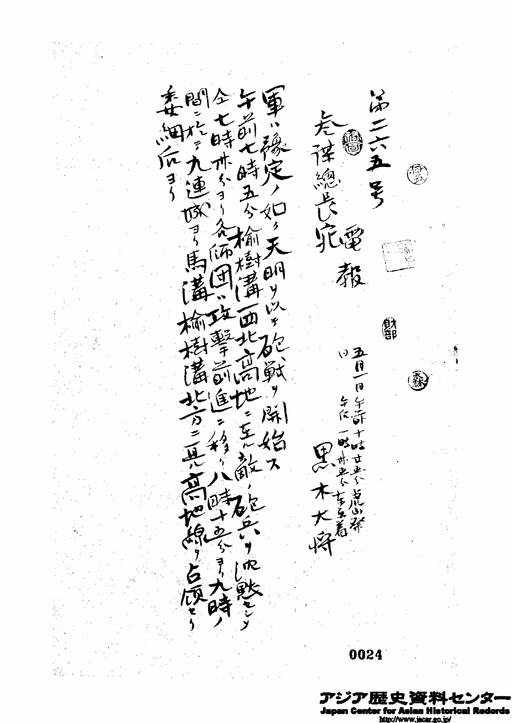 第二六五号
電報
五月一日午前十時廿五分虎山発
〃 午后一時卅五分東京着
参謀総長宛
黒木大将
軍ハ豫定ノ如ク天明ヲ以テ砲戦ヲ開始ス
午前七時五分榆樹溝西北高地ニ在ル敵ノ砲兵ヲ沈黙セシメ
仝七時卅分ヨリ各師団ハ攻撃前進ニ移リ八時十五分ヨリ九時ノ
間ニ於テ九連城ヨリ馬溝榆樹溝北方ニ亘ル高地線ヲ占領セリ
委細后ヨリ
財部
0024
アジア歴史資料センター
Japan Center for Asian Historical Records
http://www.jacar.go.jp/